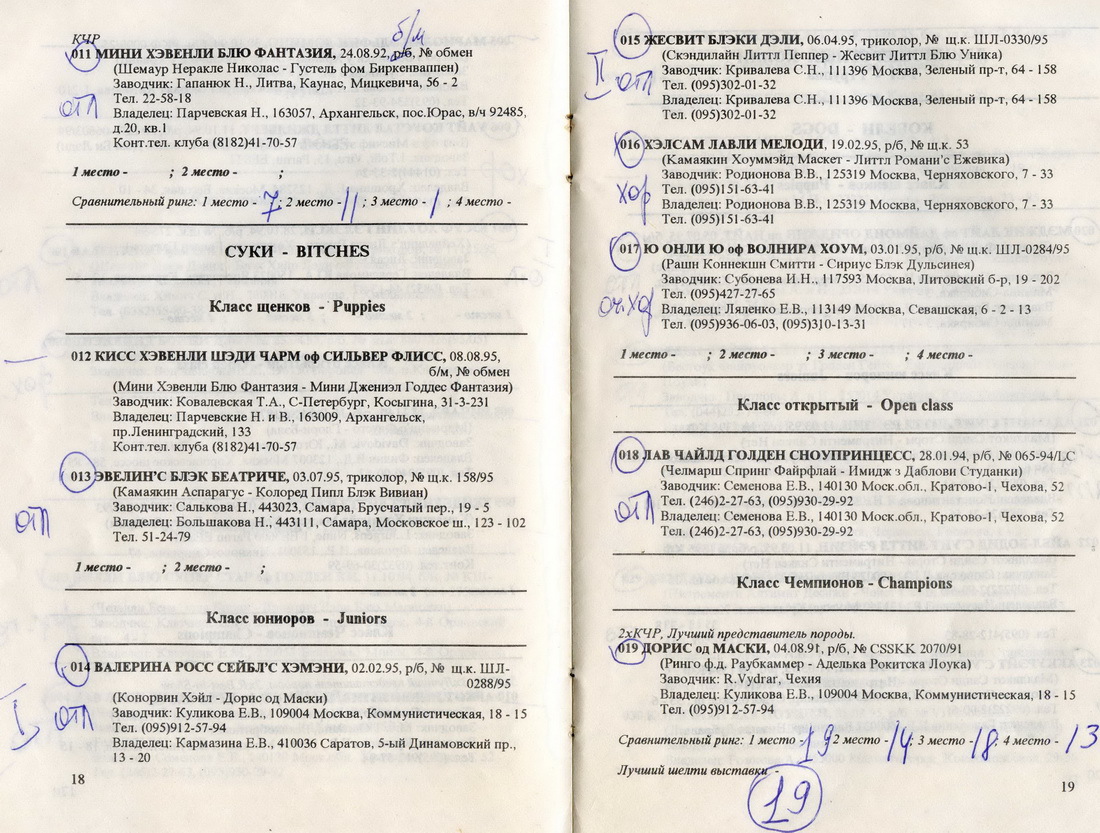 КЧР
б/м
011 МИНИ ХЭВЕНЛИ БЛЮ ФАНТАЗИЯ, 24.08.92, р/б, № обмен
(Шемаур Неракле Николас - Густель фом Биркенваппен)
Заводчик: Гапанюк Н., Литва, Каунас, Мицкевича, 56 - 2
отл
Тел. 22-58-18
Владелец: Парчевская Н., 163057, Архангельск, пос.Юрас, в/ч 92485,
д.20, кв.1
Конт.тел. клуба (8182)41-70-57
1 место - ; 2 место - ;
Сравнительный ринг: 1 место - 7; 2 место - 11; 3 место - 1; 4 место -
СУКИ - BITCHES
Класс щенков - Puppies
012 КИСС ХЭВЕНЛИ ШЭДИ ЧАРМ оф СИЛЬВЕР ФЛИСС, 08.08.95,
б/м, № обмен
(Мини Хэвенли Блю Фантазия - Мини Джениэл Годдес Фантазия)
Заводчик: Ковалевская Т.А., С-Петербург, Косыгина, 31-3-231
Владелец: Парчевские Н. и В., 163009, Архангельск,
пр.Ленинградский, 133
Конт.тел. клуба (8182)41-70-57
013 ЭВЕЛИН'С БЛЭК БЕАТРИЧЕ, 03.07.95, триколор, № щ.к. 158/95
(Камаякин Аспарагус - Колоред Пипл Блэк Вивиан)
Заводчик: Салькова Н., 443023, Самара, Брусчатый пер., 19 - 5
отл
Владелец: Большакова Н., 443111, Самара, Московское ш., 123 - 102
Тел. 51-24-79
1 место - ; 2 место - ;
Класс юниоров - Juniors
014 ВАЛЕРИНА РОСС СЕЙБЛ'С ХЭМЭНИ, 02.02.95, р/б, № щ.к. ШЛ-
0288/95
(Конорвин Хэйл - Дорис од Маски)
I отл
Заводчик: Куликова Е.В., 109004 Москва, Коммунистическая, 18 - 15
Тел. (095)912-57-94
Владелец: Кармазина Е.В., 410036 Саратов, 5-ый Динамовский пр.,
13 - 20
18
015 ЖЕСВИТ БЛЭКИ ДЭЛИ, 06.04.95, триколор, № щ.к. ШЛ-0330/95
(Скэндилайн Литтл Пеппер - Жесвит Литтл Блю Уника)
Заводчик: Кривалева С.Н., 111396 Москва, Зеленый пр-т, 64 - 158
II отл
Тел. (095)302-01-32
Владелец: Кривалева С.Н., 111396 Москва, Зеленый пр-т, 64 - 158
Тел. (095)302-01-32
016 ХЭЛСАМ ЛАВЛИ МЕЛОДИ, 19.02.95, р/б, № щ.к. 53
(Камаякин Хоуммэйд Маскет - Литтл Романи'с Ежевика)
Заводчик: Родионова В.В., 125319 Москва, Черняховского, 7 - 33
хор
Тел. (095)151-63-41
Владелец: Родионова В.В., 125319 Москва, Черняховского, 7 - 33
Тел. (095)151-63-41
017 Ю ОНЛИ Ю оф ВОЛНИРА ХОУМ, 03.01.95, р/б, № щ.к. ШЛ-0284/95
(Рашн Коннекшн Смитти - Сириус Блэк Дульсинея)
Заводчик: Субонева И.Н., 117593 Москва, Литовский б-р, 19 - 202
Тел. (095)427-27-65
оч.хор
Владелец: Ляленко Е.В., 113149 Москва, Севашская, 6 - 2 - 13
Тел. (095)936-06-03, (095)310-13-31
1 место - ; 2 место - ; 3 место - ; 4 место -
Класс открытый - Open class
018 ЛАВ ЧАЙЛД ГОЛДЕН СНОУПРИНЦЕСС, 28.01.94, р/б, № 065-94/LC
(Челмарш Спринг Файрфлай - Имидж з Даблови Студанки)
Заводчик: Семенова Е.В., 140130 Моск.обл., Кратово-1, Чехова, 52
отл
Тел. (246)2-27-63, (095)930-29-92
Владелец: Семенова Е.В., 140130 Моск.обл., Кратово-1, Чехова, 52
Тел. (246)2-27-63, (095)930-29-92
Класс Чемпионов - Champions
2хКЧР, Лучший представитель породы.
019 ДОРИС од МАСКИ, 04.08.91, р/б, № CSSKK 2070/91
(Ринго ф.д. Раубкаммер - Аделька Рокитска Лоука)
Заводчик: R.Vydrar, Чехия
Владелец: Куликова Е.В., 109004 Москва, Коммунистическая, 18 - 15
Тел. (095)912-57-94
Сравнительный ринг: 1 место - 19; 2 место - 14; 3 место - 18; 4 место - 13
Лучший шелти выставки - 19
19